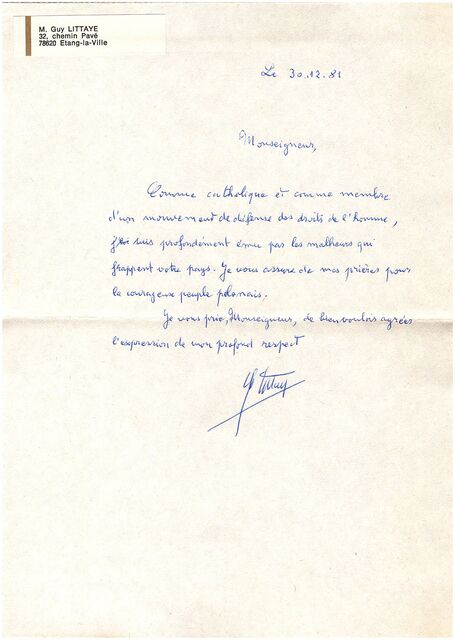 M. Guy LITTAYE
32, chemin Pavé
78620 Etang-la-Ville
Le 30.12.81
Monseigneur,
Comme catholique et comme membre
d'un mouvement de défense des droits de l'homme,
je suis profondément ému par les malheurs qui
frappent votre pays. Je vous assure de mes prières pour
le courageux peuple polonais.
Je vous prie, Monseigneur, de bien vouloir agréer
l'expression de mon profond respect
G Littaye